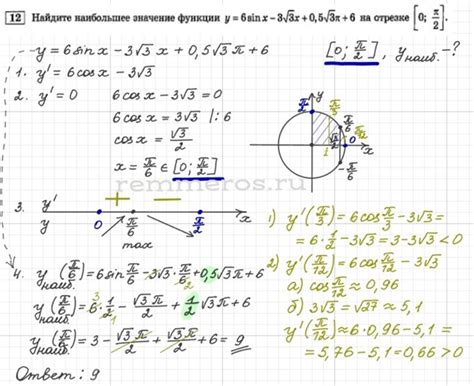 12 Найдите наибольшее значение функции y = 6 sin x − 3√3x + 0,5√3π + 6 на отрезке [0; π/2].
y = 6 sin x − 3√3 x + 0,5√3 π + 6
[0; π/2], y наиб. − ?
1. y' = 6 cos x − 3√3
2. y' = 0 6 cos x − 3√3 = 0
6 cos x = 3√3 |: 6
cos x = √3/2
x = π/6 ∈ [0; π/2]
y
π/2 π/3 π/6 π/12
0 x
1 √3/2
−π/6
remmeros.ru
3. y' + −
y 0 π/6 π/2 x
max
1) y'(π/3) = 6 cos π/3 − 3√3 =
= 6 · 1/2 − 3√3 = 3 − 3√3 < 0
2) y'(π/12) = 6 cos π/12 − 3√3
а) cos π/12 ≈ 0,96
б) 3√3 = √27 ≈ 5,1
y'(π/12) ≈ 6 · 0,96 − 5,1 =
= 5,76 − 5,1 = 0,66 > 0
4. y наиб. (π/6) = 6 sin π/6 − 3√3 · π/6 + 0,5√3 π + 6
2
y наиб. (π/6) = 6 · 1/2 − √3 π/2 + 1/2 √3 π + 6
3 1
y наиб. (π/6) = 3 − √3 π/2 + √3 π/2 + 6 = 9
Ответ: 9